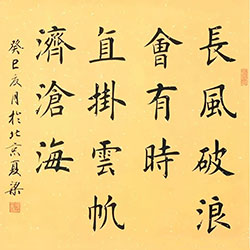 長風破浪
會有時
直掛雲帆
濟滄海
癸巳夜月於北京夏梁